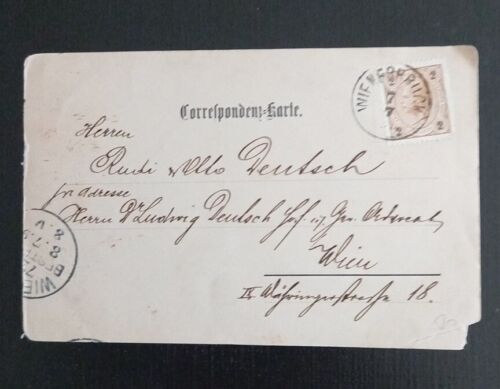 Correspondenz-Karte.
WIENERBRUCK
7
7
2 2
2 2
Herren
Rudi u Otto Deutsch
per Adresse
Herrn Dr Ludwig Deutsch Hof. u. Ger. Advocat
Wien
IX Währingerstrasse 18.
WIEN
8. 7. 9
8. V
BEST